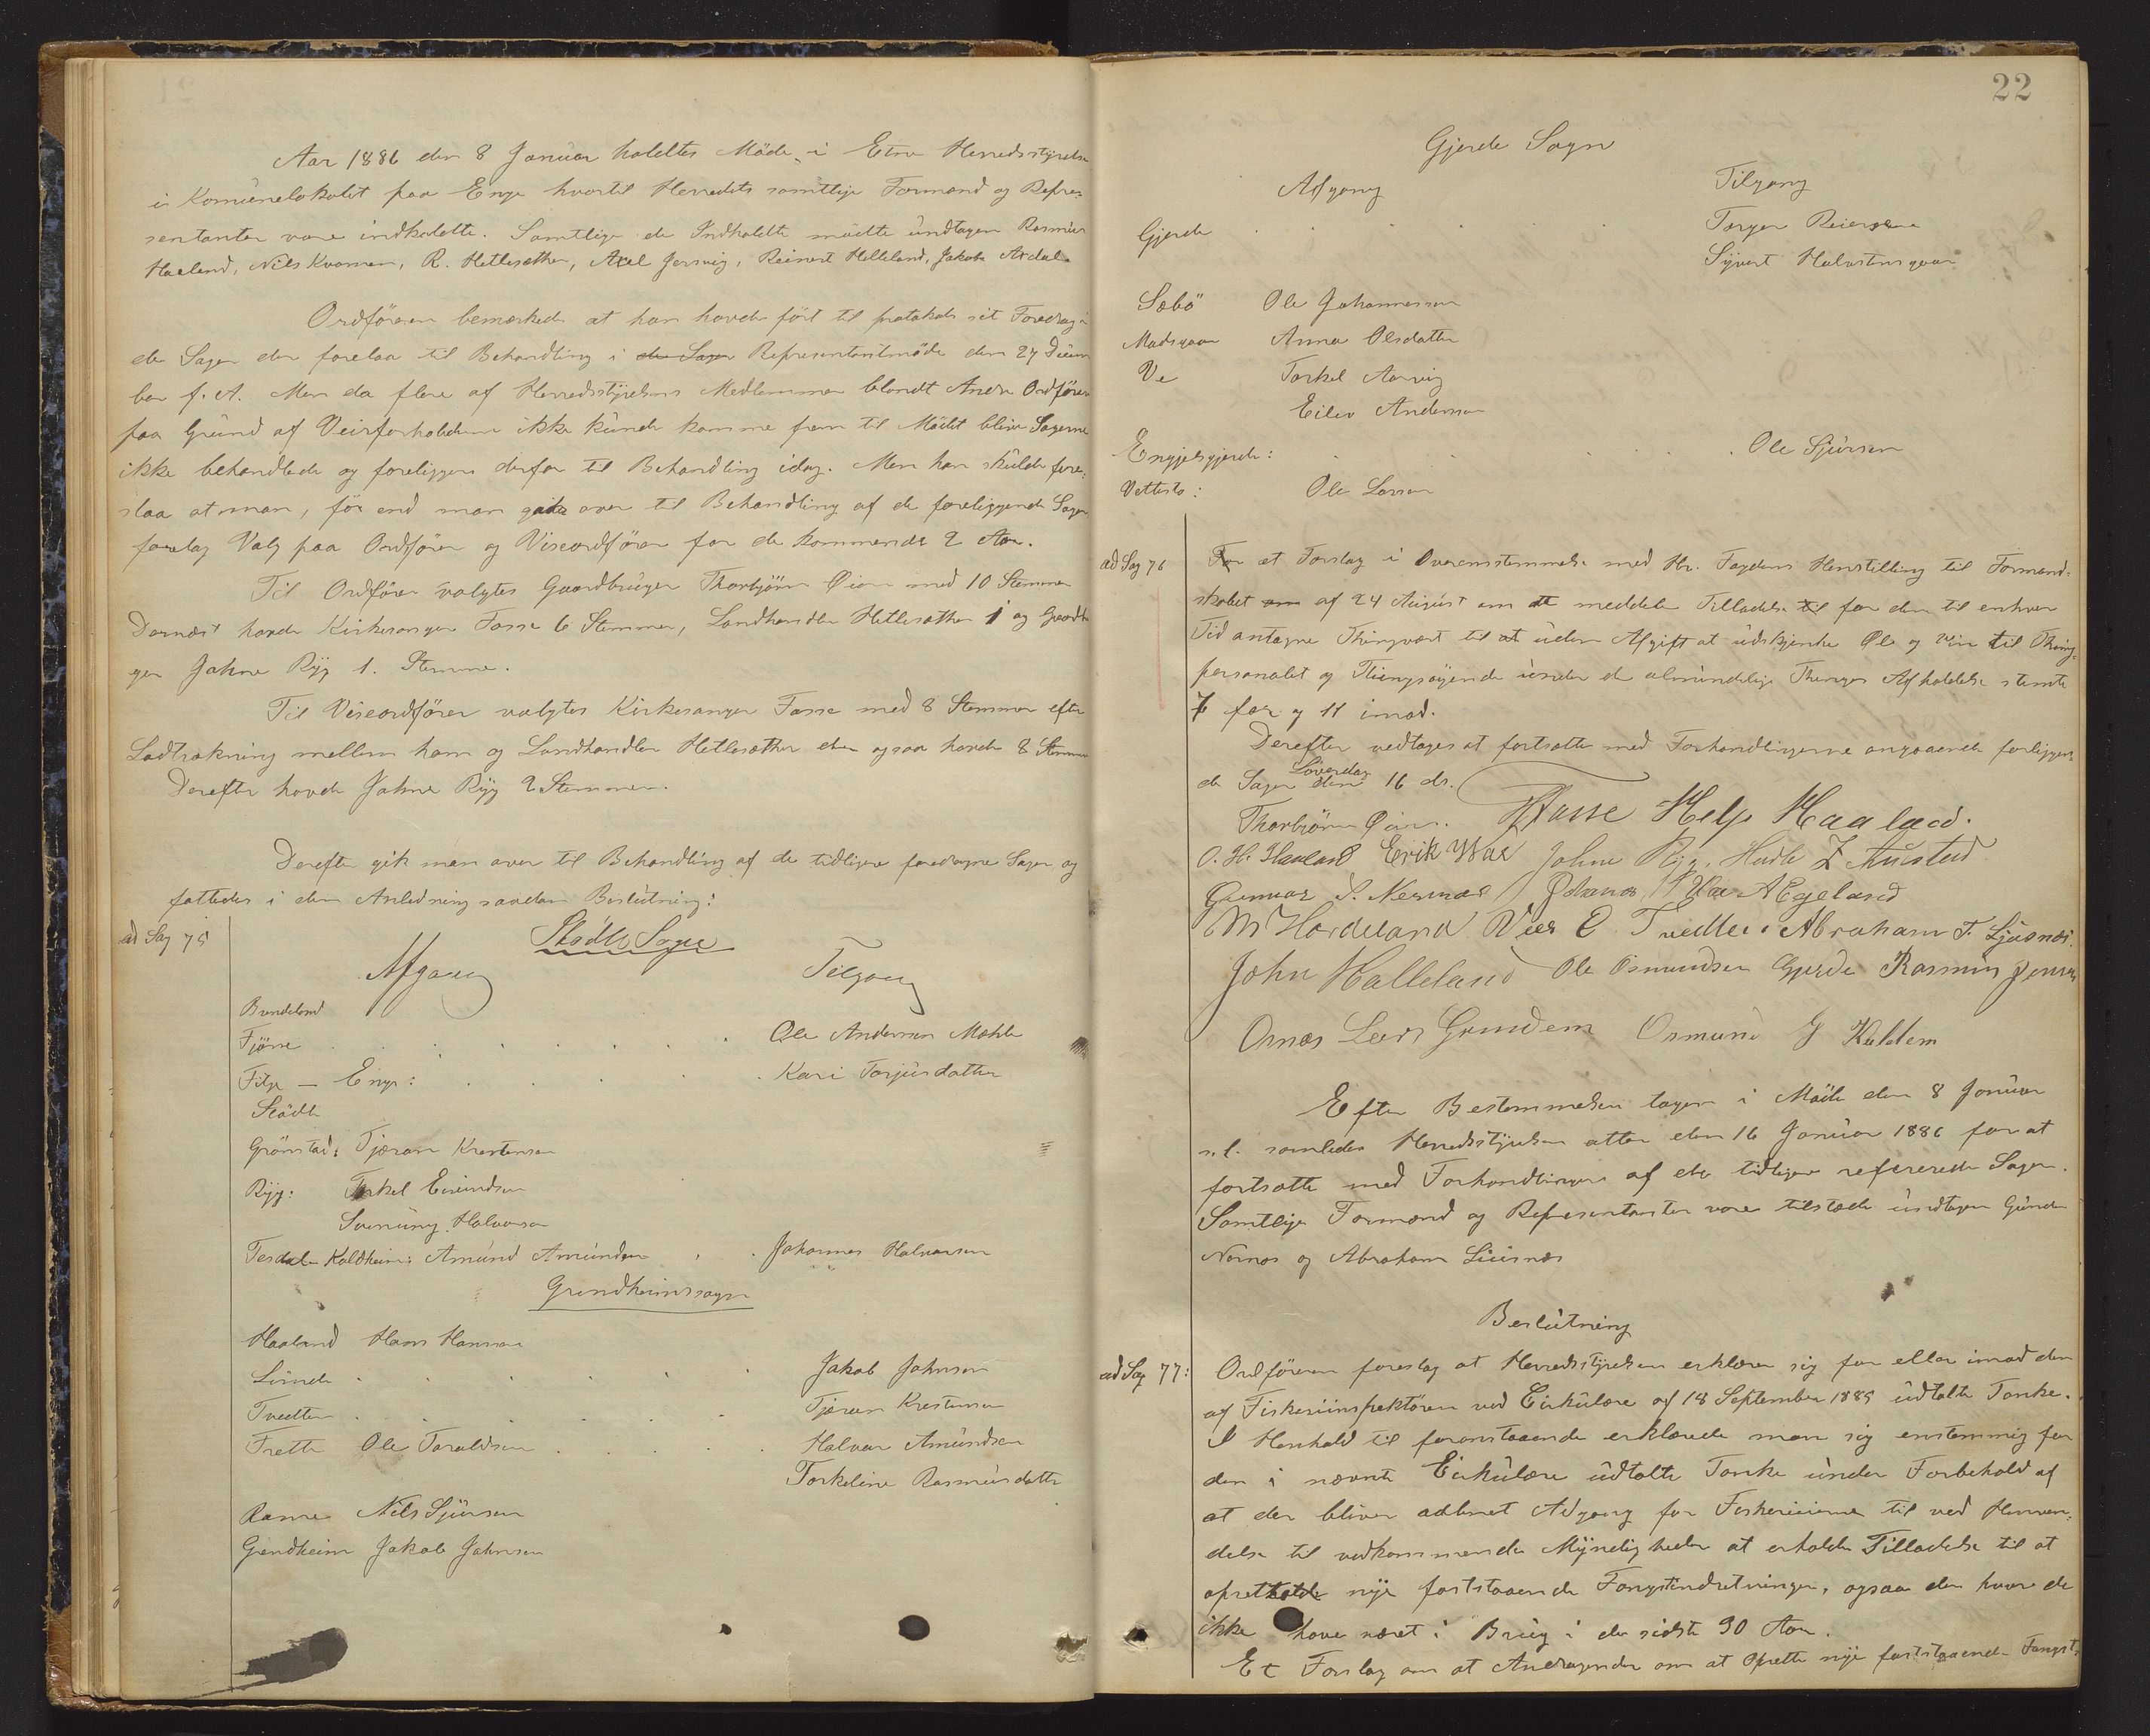 Aar 1886 den 8 Januar holdtes Möde i Etne Herredsstyrelse
i Komunelokalet paa Enge hvortil Herredets samtlige Formænd og Repre-
sentanter vare indkaldte. Samtlige de Indkaldte mödte undtagen Rasmus
Haaland, Nils Kvamen, R. Hetlesæther, Axel Jersvig, Reinert Helleland, Jakob Ardal
Ordföreren bemærkede at han havde fört til protokols sit Foredrag i
de Sager der forelaa til Behandling i de Sager Representantmöde den 27 Decem
ber f. A. Men da flere af Herredsstyrelsens Medlemmer blandt Andre Ordförer
paa Grund af Veirforholdene ikke kunde komme frem til Mödet bleve Sagerne
ikke behandlede og foreligger derfor til Behandling idag. Men han skulde fore-
slaa at man, för end man gik over til Behandling af de foreliggende Sager
foretog Valg paa Ordförer og Viseordförer for de kommende 2 Aar.
Til Ordförer valgtes Gaardbruger Thorbjörn Øien med 10 Stemmer
Dernæst havde Kirkesanger Fosse 6 Stemmer, Landhandler Hetlesæther 1 og Gaardb
ger Johne Ryg 1. Stemme.
Til Viseordförer valgtes Kirkesanger Fosse med 8 Stemmer efter
Lodtrækning mellem ham og Landhandler Hetlesæther der ogsaa havde 8 Stemmer
Derefter havde Johne Ryg 2 Stemmer.
Derefter gik man over til Behandling af de tidligere foredragne Sager og
fattedes i den Anledning saadan Beslutning:
ad Sag 75
Stödle Sogn
Afgang Tilgang
Brendeland
Fjösne . . . . Ole Andersen Mæhle
Fitje — Enge: . . . . Kari Torjusdatter
Stödle
Grönstad: Tjæran Krestensen
Ryg: Torkel Eivindsen
Svenung Halvorsen
Tesdal Kaldheim: Amund Amundsen . . Johannes Halvorsen
Grindheimssogn
Haaland Hans Hansen
Lunde . . . . Jakob Johnsen
Tvedten . . . . Tjæran Krestensen
Frette Ole Taraldsen . . . . Halvor Amundsen
Torkeline Rasmusdatter
Ramne Nils Sjursen
Grindheim Jakob Johnsen
22
Gjerde Sogn
Afgang Tilgang
Gjerde . . . . Torger Reiersen
Syvert Halvstensgaar
Sæbö Ole Johannessen
Madsgaar Anna Olsdatter
Ve Torkel Aarvig
Eilev Andersen
Engjelsgjerde: . . . . Ole Sjursen
Vetteste: Ole Larsen
ad Sag 76
For et Forslag i Overensstemmelse med Hr. Fogdens Henstilling til Formand-
skabet om af 24 August om at meddele Tilladelse til for den til enhver
Tid antagne Thingvært til at uden Afgift at udskjenke Øl og Vin til Thing-
personalet og Thingsögende under de almindelige Thinges Afholdelse stemte
7 for og 11 imod.
Derefter vedtoges at fortsætte med Forhandlingerne angaaende foreliggen-
de Sager Löverdag den 16 ds.
Thorbjörn Øien. Fosse Helje Haaland.
O. H. Haaland Erik Wae Johne Ryg. Austad
Gunnar S. Nernæs Johanes Vae A Egeland
M Hordeland Vier O Tvedten Abraham T. Ljusnæs.
John Halleland Ole Osmundsen Gjerde Rasmus Jensen
Osnæs Lars Grindem Osmund J Kaldem
Efter Bestemmelsen tagen i Möde den 8 Januar
s. l. samledes Herredsstyrelsen atter den 16 Januar 1886 for at
fortsætte med Forhandlingen af de tidligere refererede Sager.
Samtlige Formænd og Representanter vare tilstede undtagen Gunder
Nernæs og Abraham Liusnæs
Beslutning
ad Sag 77:
Ordföreren foreslog at Herredsstyrelsen erklærer sig for eller imod den
af Fiskeriinspektören ved Cirkulære af 18 September 1885 udtalte Tanke.
I Henhold til foranstaaende erklærede man sig enstemmig for
den i nævnte Cirkulære udtalte Tanke under Forbehold af
at der bliver aabnet Adgang for Fiskerieierne til ved Henven-
delse til vedkommende Myndigheder at erholde Tilladelse til at
opretholde nye faststaaende Fangstindretninger, ogsaa der hvor de
ikke have været i Brug i de sidste 30 Aar.
Et Forslag om at Andragender om at Oprette nye faststaaende Fangst-